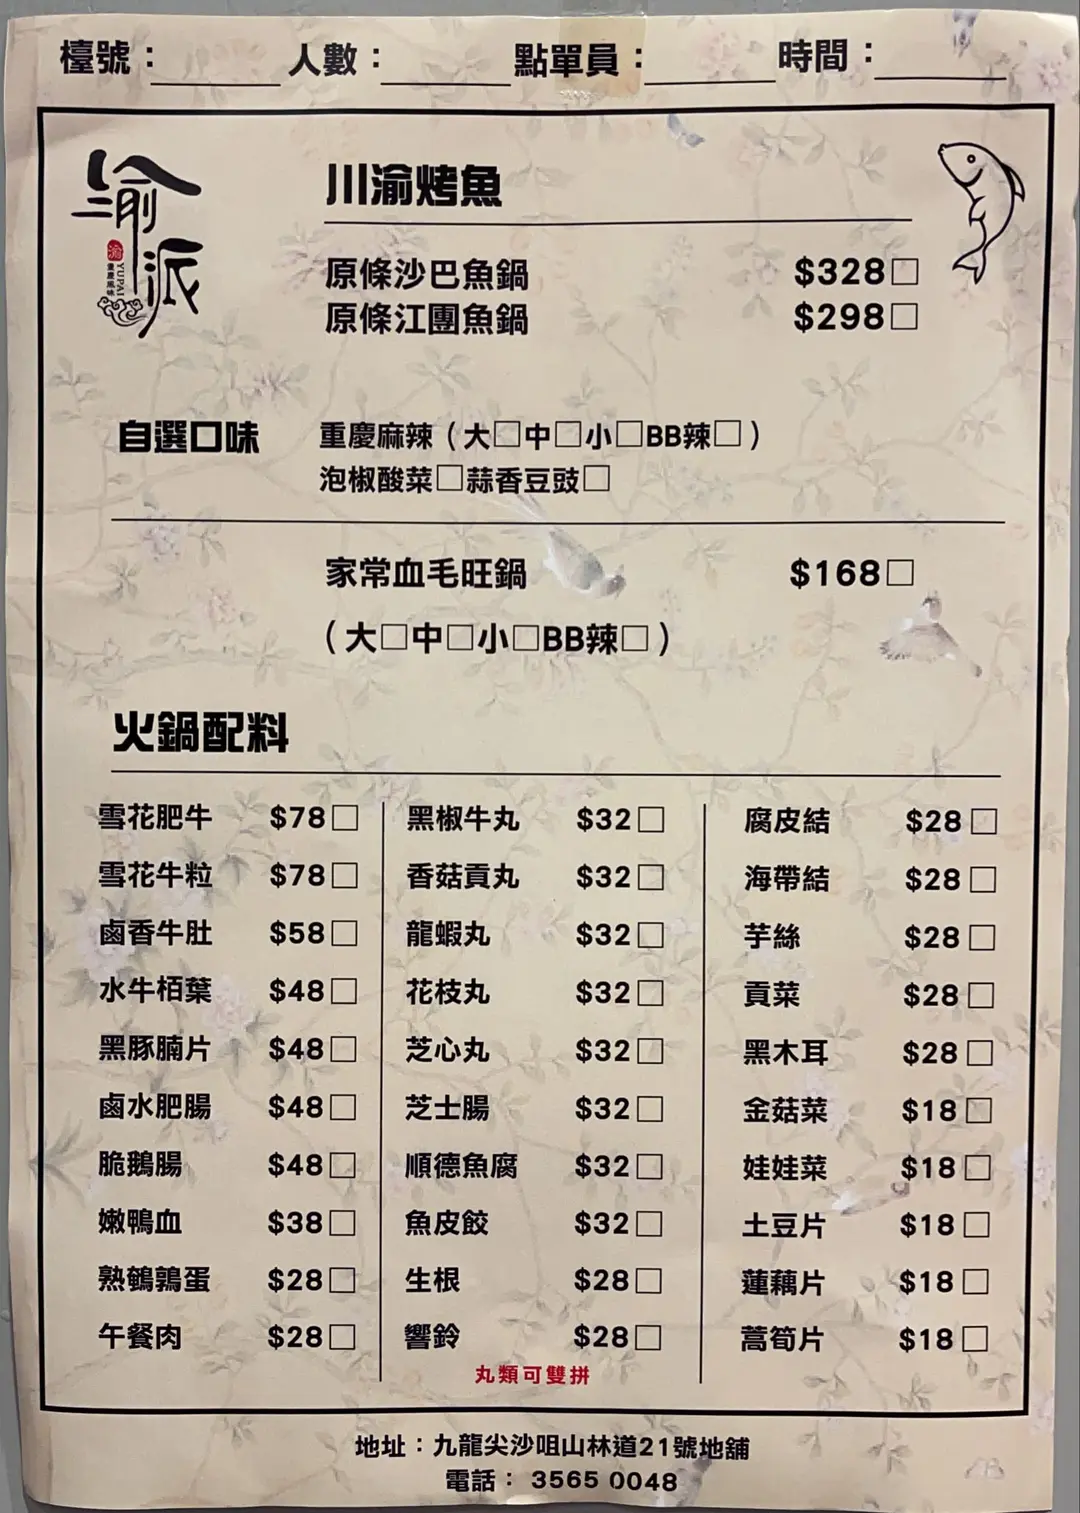 檯號： 人數： 點單員： 時間：
渝派
渝
YUPAI
重慶風味
川渝烤魚
原條沙巴魚鍋 $328□
原條江團魚鍋 $298□
自選口味 重慶麻辣（大□中□小□BB辣□）
泡椒酸菜□蒜香豆豉□
家常血毛旺鍋 $168□
（大□中□小□BB辣□）
火鍋配料
雪花肥牛 $78□
雪花牛粒 $78□
鹵香牛肚 $58□
水牛栢葉 $48□
黑豚腩片 $48□
鹵水肥腸 $48□
脆鵝腸 $48□
嫩鴨血 $38□
熟鵪鶉蛋 $28□
午餐肉 $28□
黑椒牛丸 $32□
香菇貢丸 $32□
龍蝦丸 $32□
花枝丸 $32□
芝心丸 $32□
芝士腸 $32□
順德魚腐 $32□
魚皮餃 $32□
生根 $28□
響鈴 $28□
丸類可雙拼
腐皮結 $28□
海帶結 $28□
芋絲 $28□
貢菜 $28□
黑木耳 $28□
金菇菜 $18□
娃娃菜 $18□
土豆片 $18□
蓮藕片 $18□
萵筍片 $18□
地址：九龍尖沙咀山林道21號地舖
電話： 3565 0048